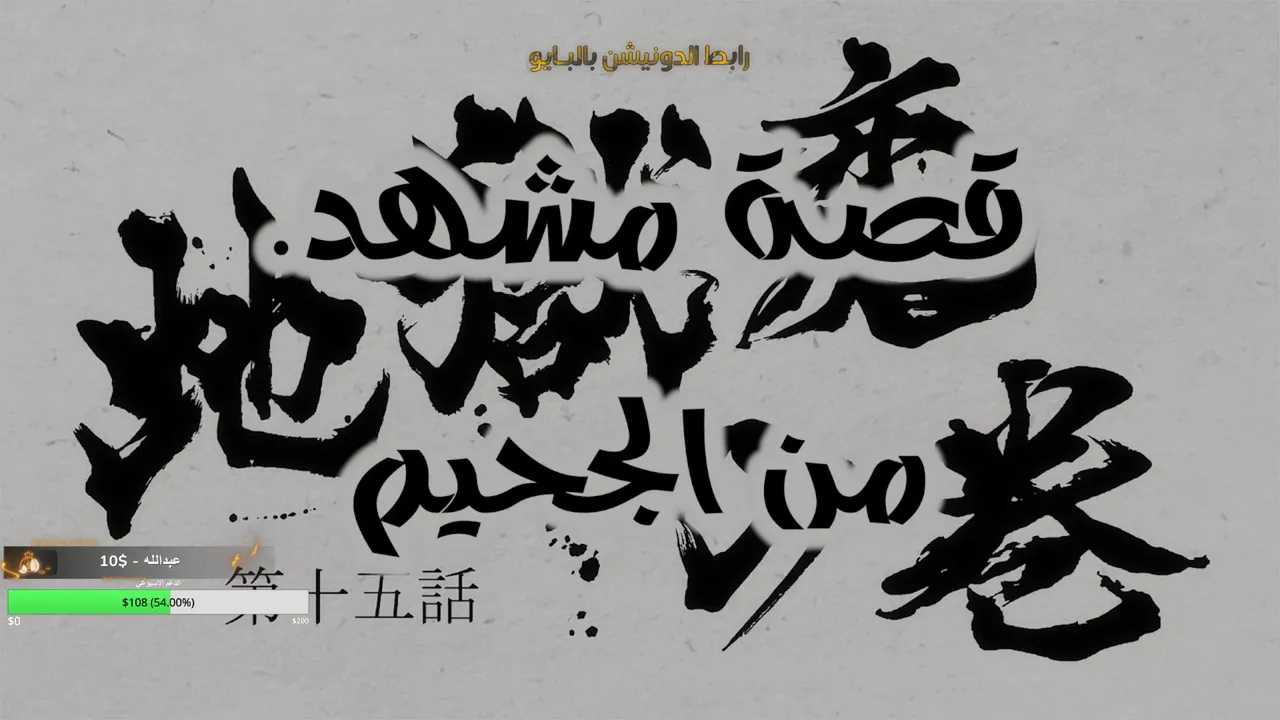 رابط الدونيشن بالبايو
قصة مشهد
من الجحيم
地獄変
巻
عبدالله - $10
الدعم الاسبوعي
$108 (54.00%)
$0
$200
第十五話